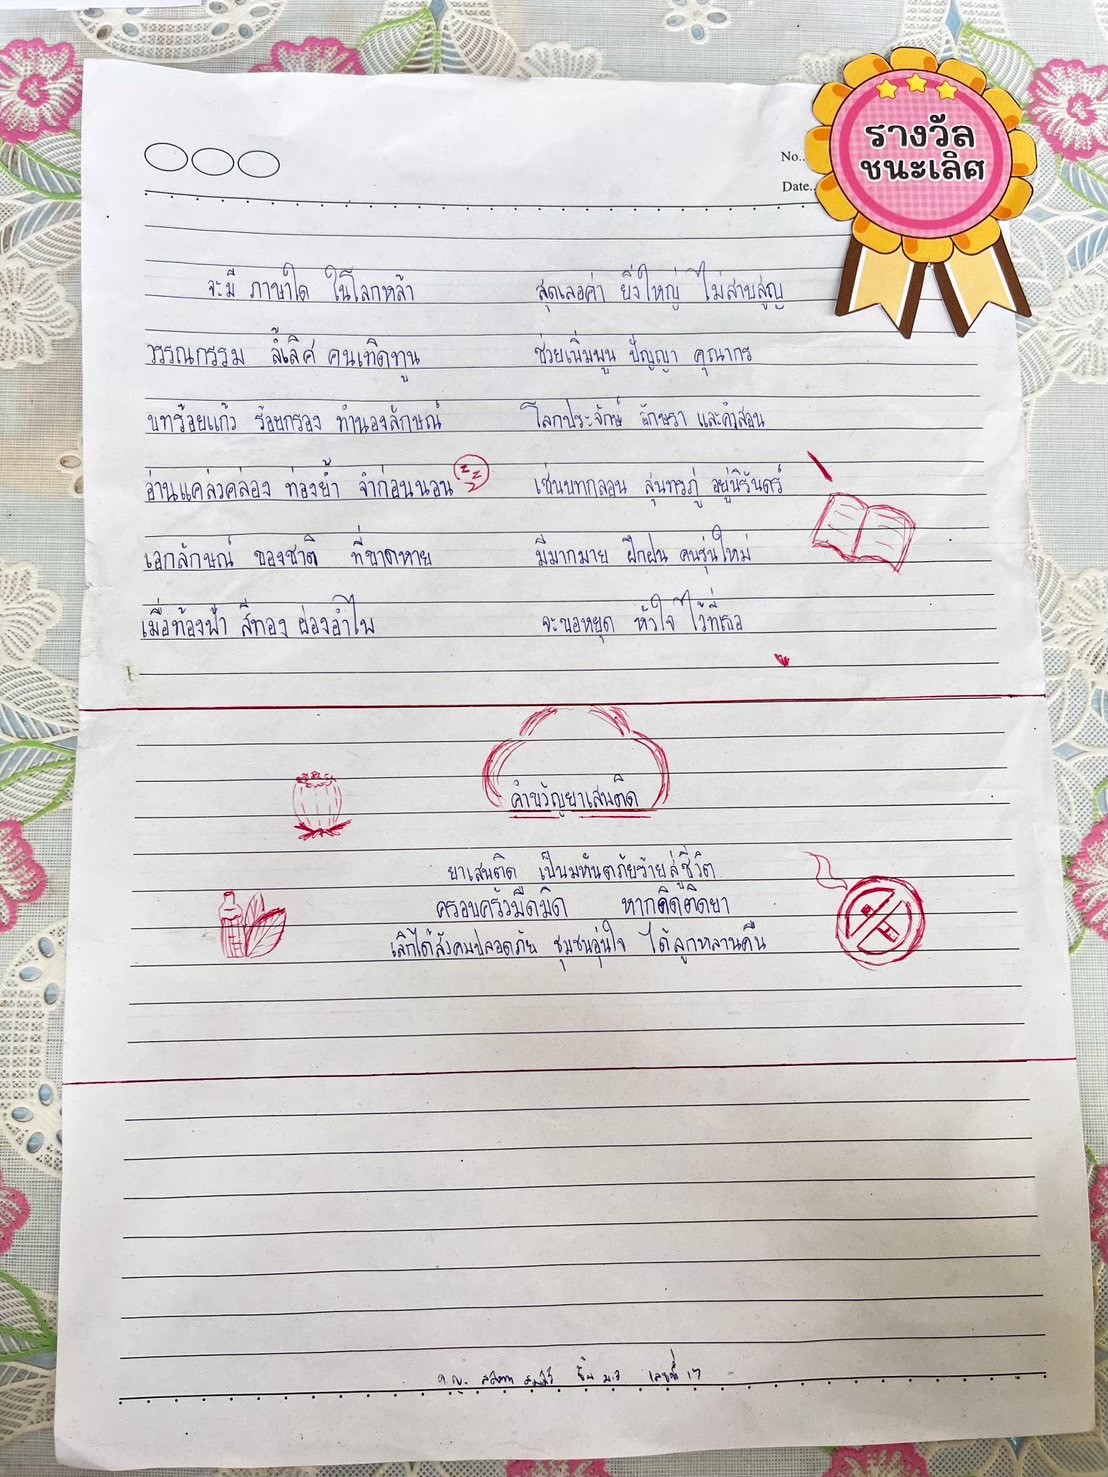 รางวัล
ชนะเลิศ
No..
Date..
จะมี ภาษาใด ในโลกหล้า สุดเลอค่า ยิ่งใหญ่ ไม่สาบสูญ
วรรณกรรม ล้ำเลิศ คนเทิดทูน ช่วยเพิ่มพูน ปัญญา คุณากร
บทร้อยแก้ว ร้อยกรอง ทำนองลักษณ์ โลกประจักษ์ อักษรา และคำสอน
อ่านแคล่วคล่อง ท่องย้ำ จำก่อนนอน zzz เช่นบทกลอน สุนทรภู่ อยู่นิรันดร์
เอกลักษณ์ ของชาติ ที่ขาดหาย มีมากมาย ฝึกฝน คนรุ่นใหม่
เมื่อท้องฟ้า สีทอง ผ่องอำไพ จะขอหยุด หัวใจ ไว้ที่เธอ
คำขวัญยาเสพติด
ยาเสพติด เป็นมหันตภัยร้ายสู่ชีวิต
ครอบครัวมืดมิด หากคิดติดยา
เลิกได้สังคมปลอดภัย ชุมชนอุ่นใจ ได้ลูกหลานคืน
เลขที่ 17